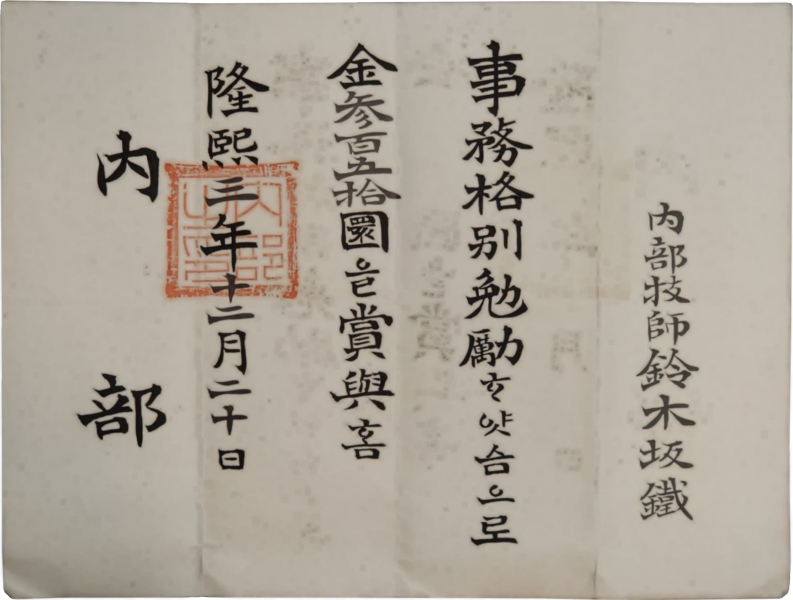 內部技師鈴木坂鐵
事務格別勉勵ᄒᆞ얏슴으로
金參百五拾圜을賞與홈
隆熙三年十二月二十日
內部